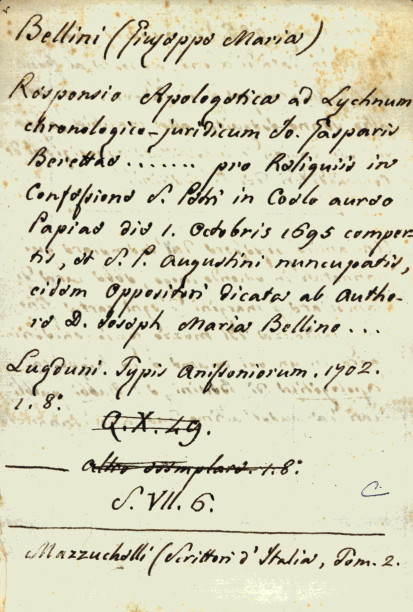 Bellini (Giuseppe Maria)
Responsio Apologetica ad Lychnum
chronologico-juridicum Jo. Gasparis
Berettae ....... pro Reliquiis in
Confessione S. Petri in Coelo aureo
Papiae die 1. Octobris 1695 comper-
tis, et S. P. Augustini nuncupatis,
eidem Oppositori dicata ab Autho-
re D. Joseph Maria Bellino ...
Lugduni. Typis Anissoniorum. 1702.
1. 8.º
Q. X. 49.
altro esemplare. 1. 8.º
S. VII. 6.
C.
Mazzuchelli (Scrittori d'Italia, Tom. 2.